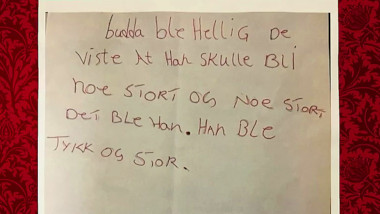 budda ble HelliG De
viste At Han skulle BLi
noe STORT OG Noe STORT
DeT BLe Han. HAn BLe
TYKK OG STOR.